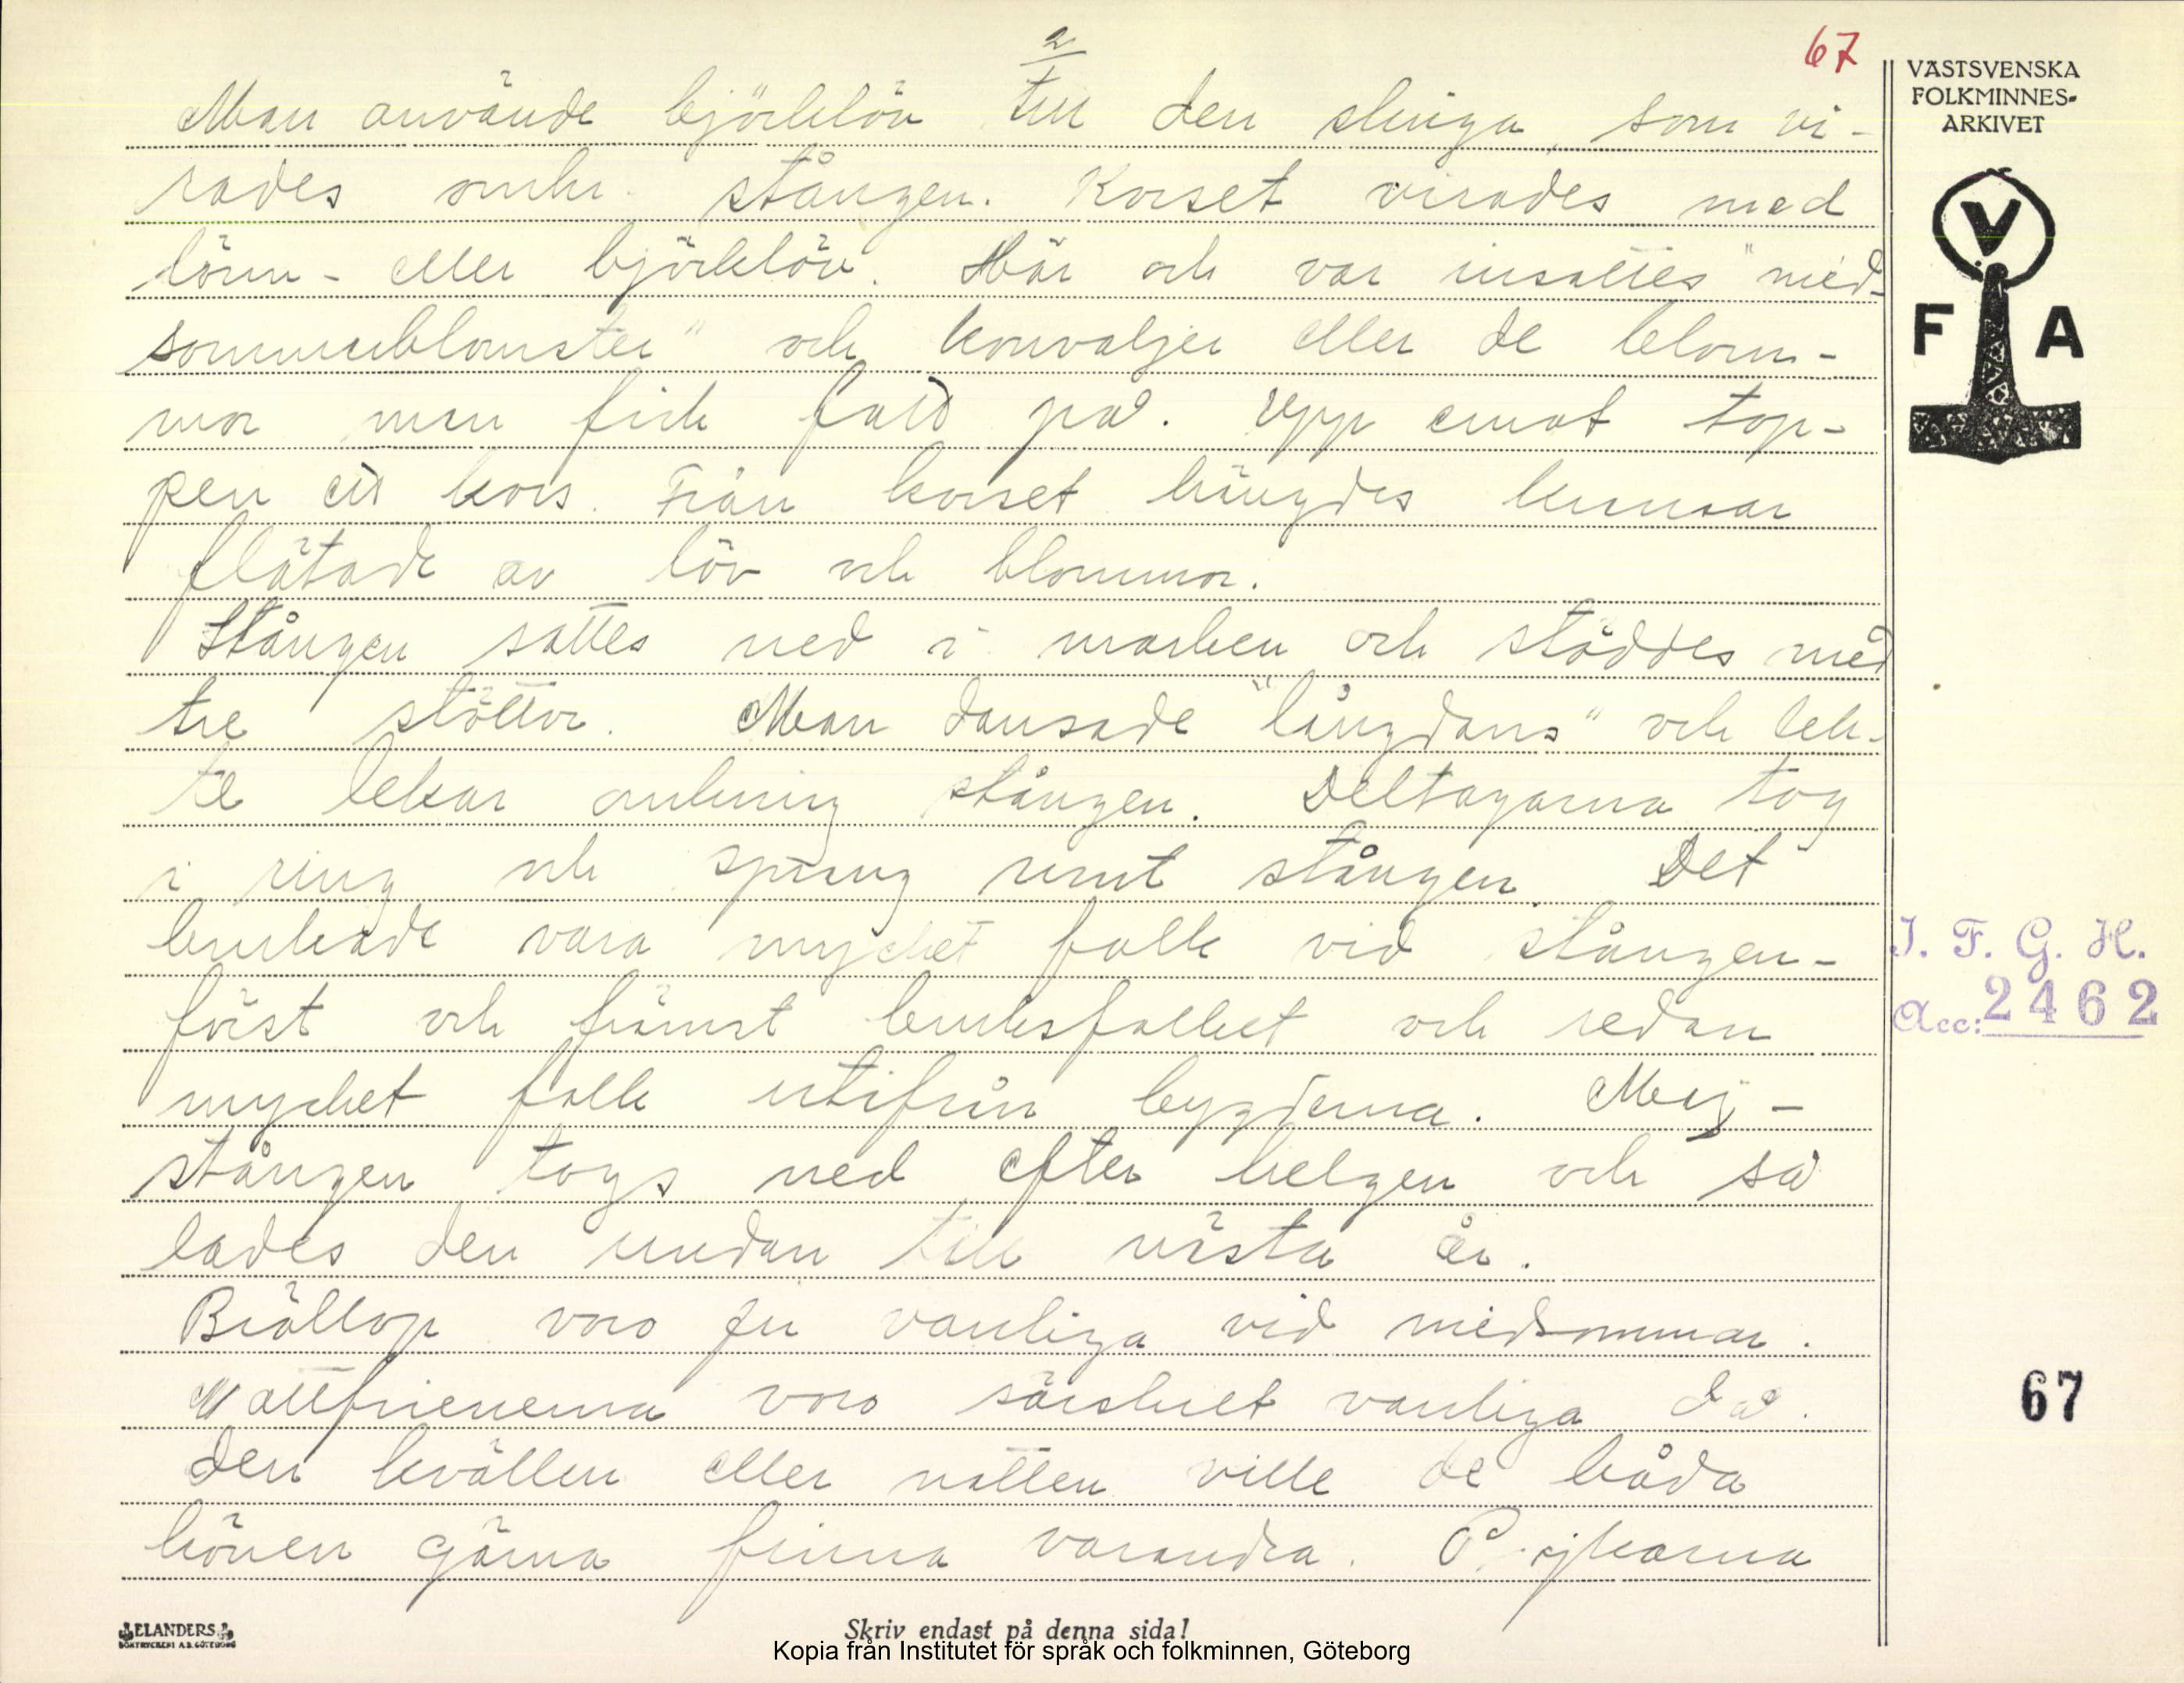 2
67
VÄSTSVENSKA
FOLKMINNES-
ARKIVET
V
F A
Man använde björklöv till den slinga, som vi-
rades omkr. stången. Korset virades med
lönn- eller björklöv. Här och var insattes "mid-
sommarblomster" och konvaljer eller de blom-
mor man fick fatt på. Upp emot top-
pen ett kors. Från korset hängdes kransar
flätade av löv och blommor.
Stången sattes ned i marken och stöddes med
tre stöttor. Man dansade "långdans" och lek-
te lekar omkring stången. Deltagarna tog
i ring och sprang runt stången. Det
brukade vara mycket folk vid stången-
först och främst bruksfolket och sedan
mycket folk utifrån bygderna. Maj-
stången togs ned efter helgen och så
lades den undan till nästa år.
Bröllop voro ju vanliga vid midsommar.
Nattfrierierna voro särskilt vanliga då.
Den kvällen eller natten ville de båda
könen gärna finna varandra. Pojkarna
I. F. G. H.
Acc: 2462
67
ELANDERS
BOKTRYCKERI A.B. GÖTEBORG
Skriv endast på denna sida!
Kopia från Institutet för språk och folkminnen, Göteborg